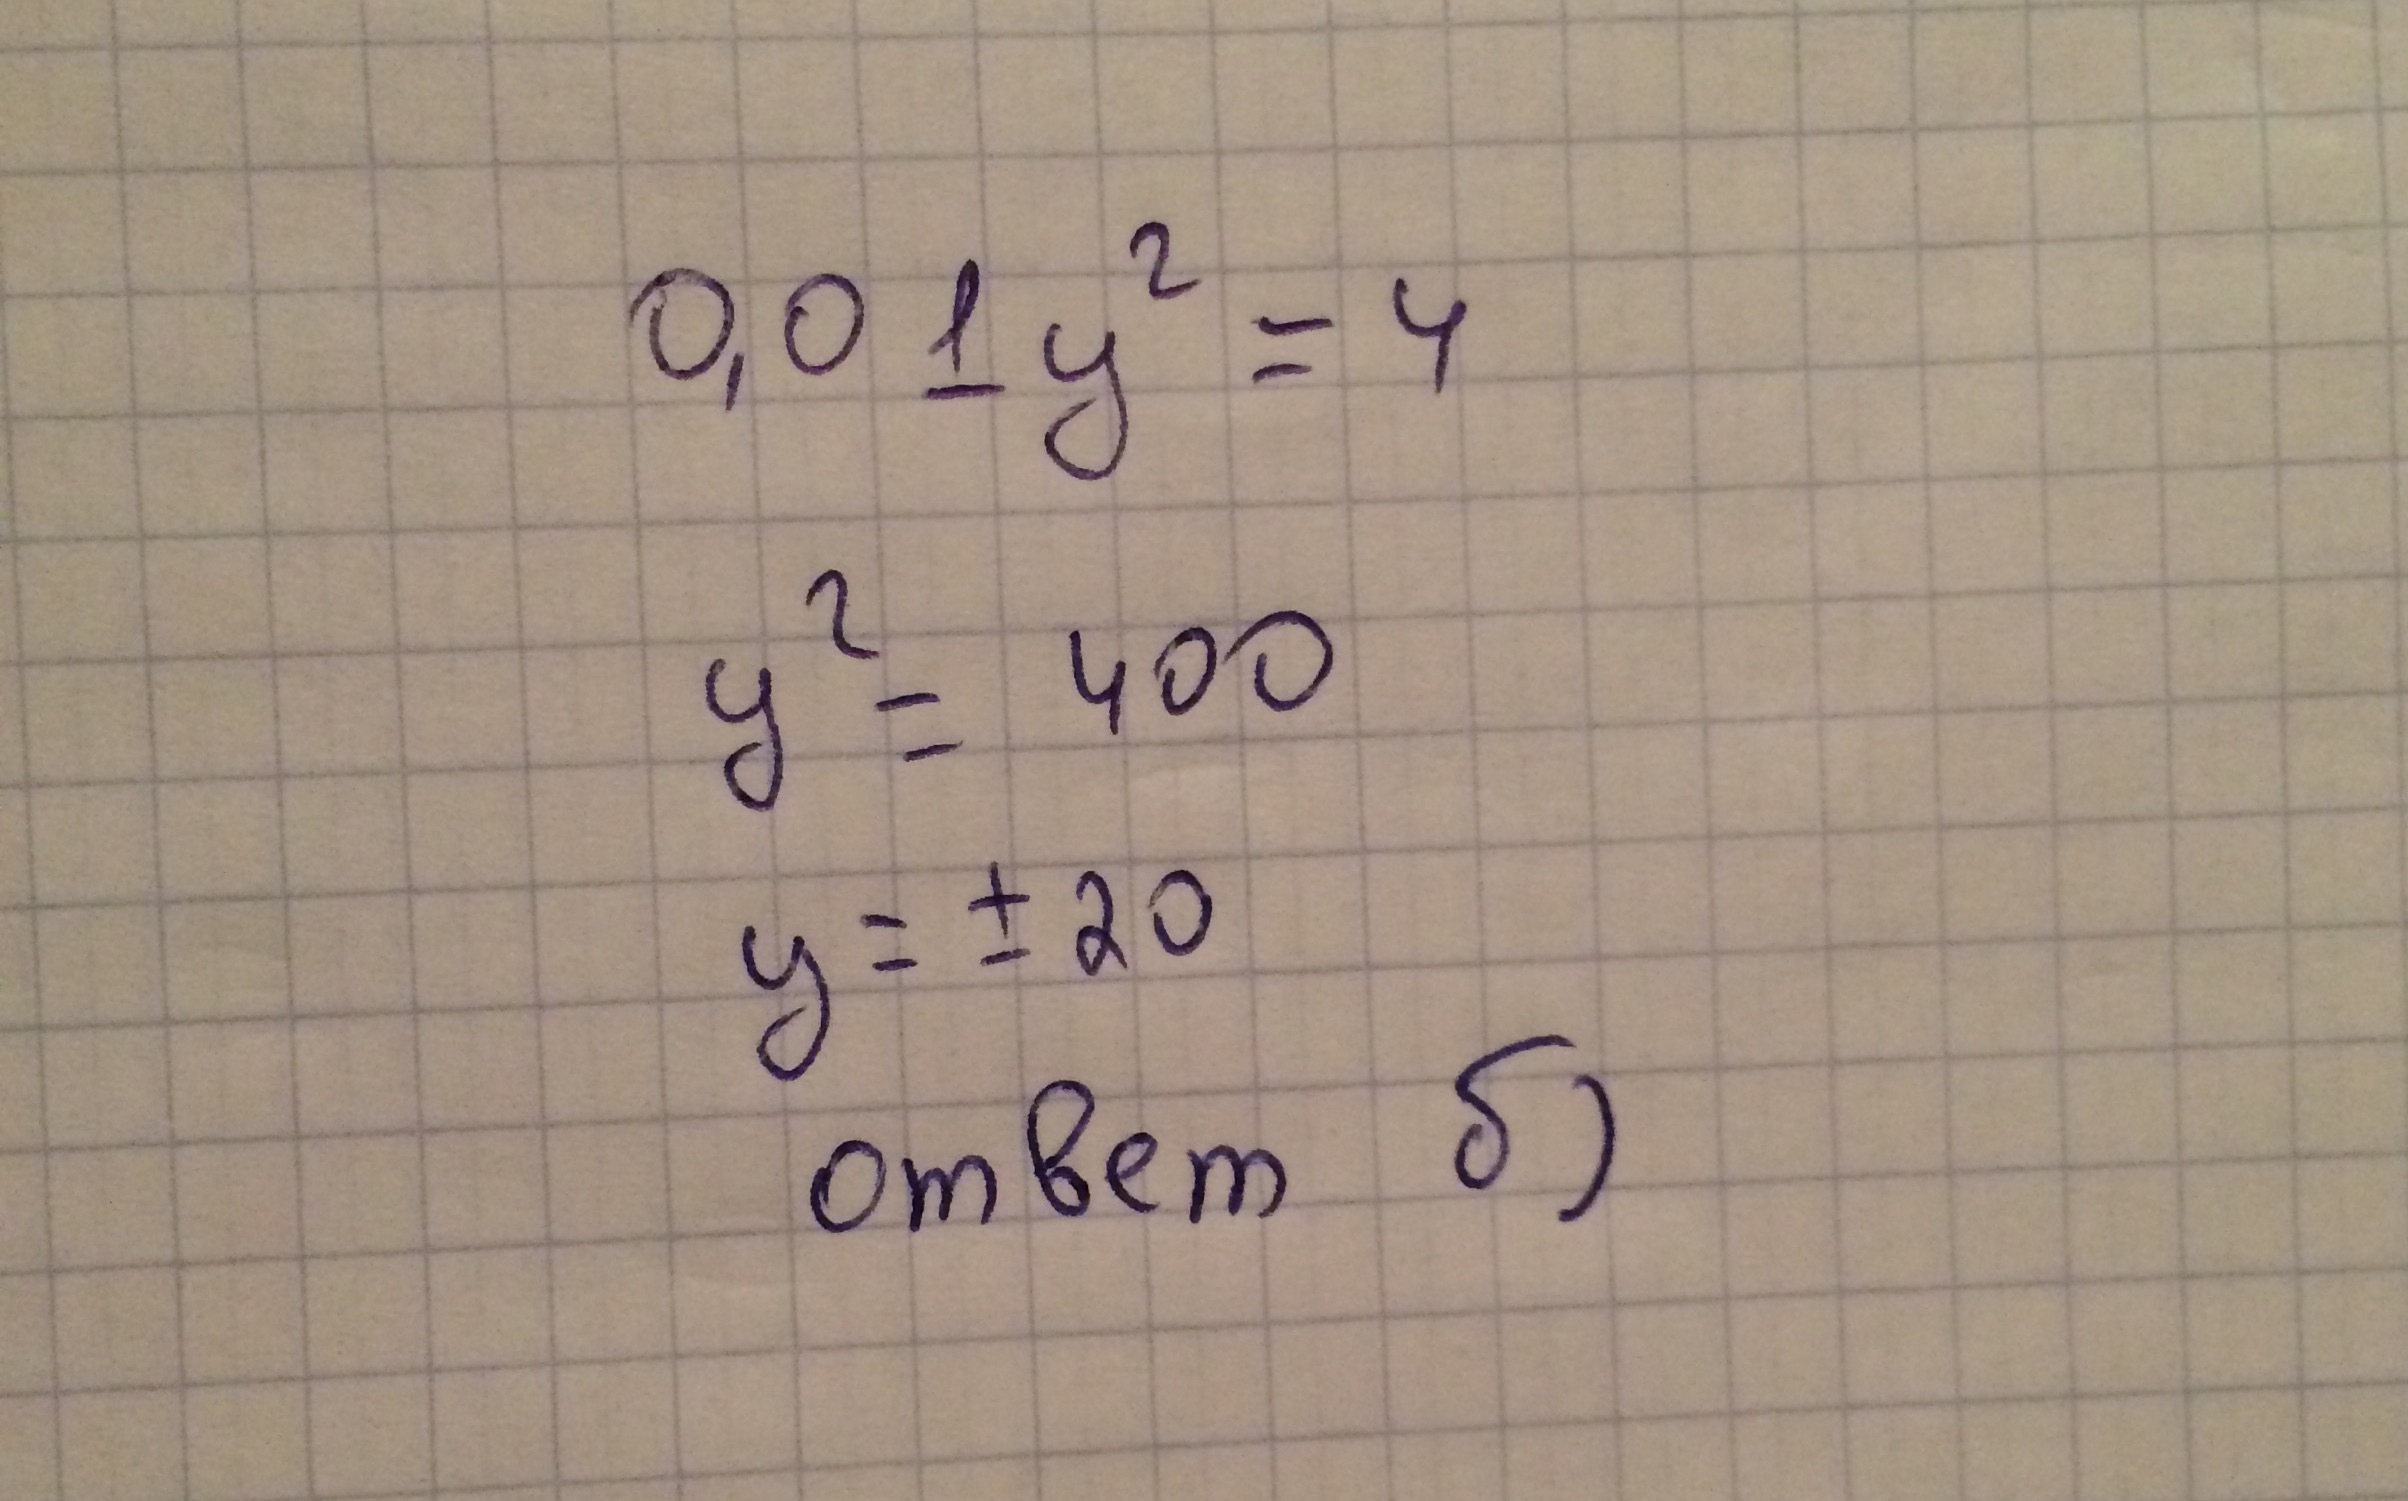 0,01y² = 4
y² = 400
y = ±20
ответ б)